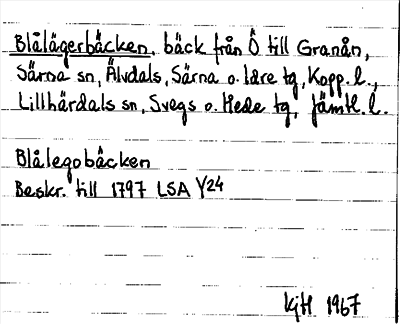 Blålägerbäcken, bäck från Ö till Granån,
Särna sn, Älvdals, Särna o. Idre tg, Kopp. l.,
Lillhärdals sn, Svegs o. Hede tg, Jämtl. l.
Blålegobäcken
Beskr. till 1797 LSA Y24
KjH 1967